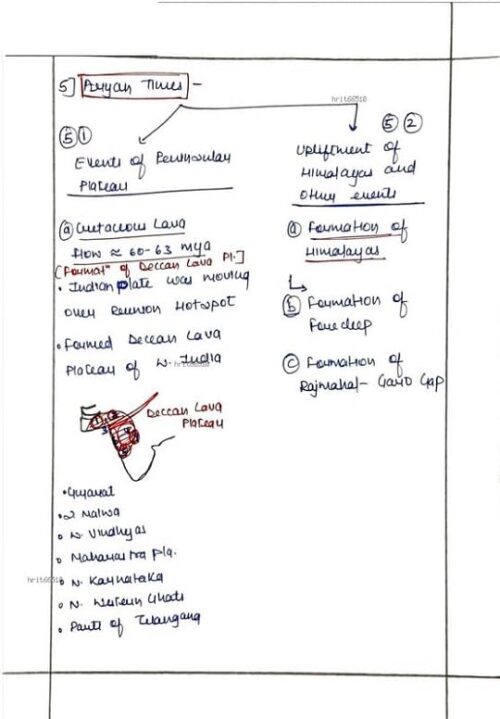 5] Aryan Times -
hrit66510
5 1
Events of Peninsular
Plateau
a Cretaceous Lava
flow ≈ 60-63 mya
[Formatⁿ of Deccan Lava Pl.]
• Indian plate was moving
over Reunion Hotspot
• Formed Deccan Lava
Plateau of W. India
Deccan Lava
Plateau
• Gujarat
• Malwa
• Vindhyas
• Maharastra pla.
• N. Karnataka
• N. Western Ghats
• Parts of Telangana
5 2
Upliftment of
Himalayas and
Other events
a Formation of
Himalayas
b Formation of
Foredeep
c Formation of
Rajmahal - Garo Gap
hrit66510
hrit66510